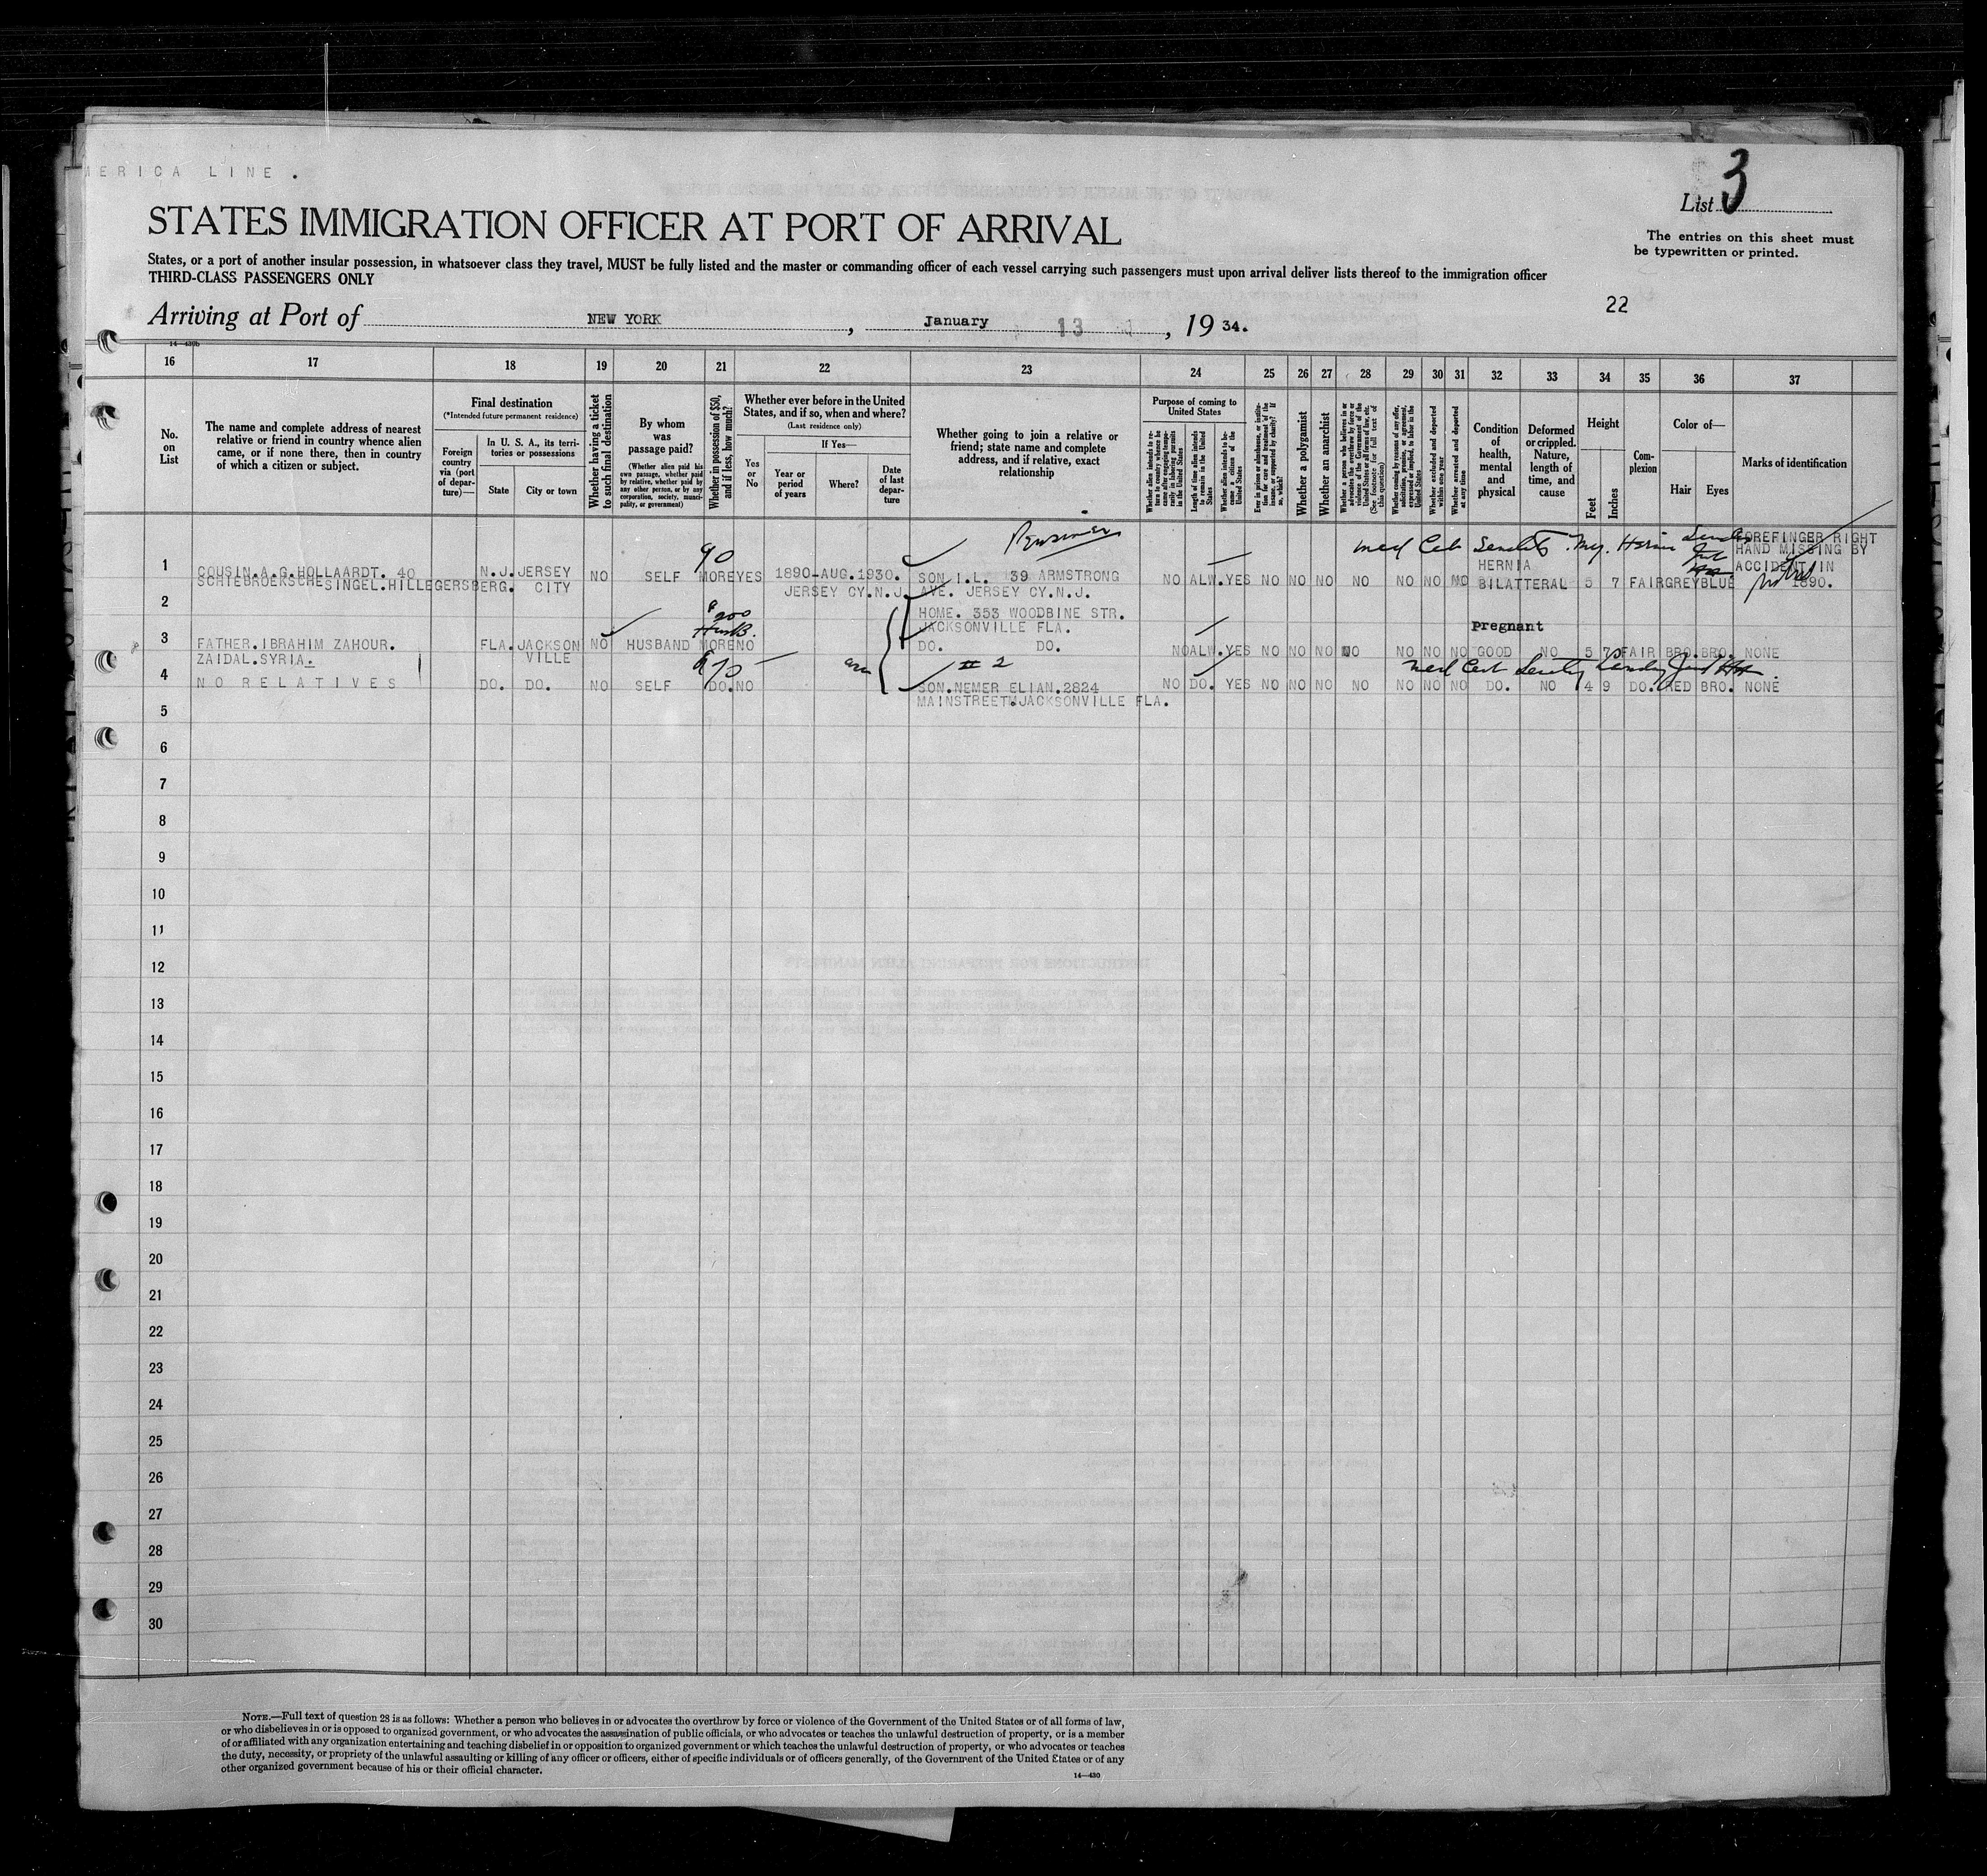 MERICA LINE .
List 3
STATES IMMIGRATION OFFICER AT PORT OF ARRIVAL
The entries on this sheet must
be typewritten or printed.
States, or a port of another insular possession, in whatsoever class they travel, MUST be fully listed and the master or commanding officer of each vessel carrying such passengers must upon arrival deliver lists thereof to the immigration officer
THIRD-CLASS PASSENGERS ONLY
22
Arriving at Port of NEW YORK, January 13, 1934.
14—430b
16 17 18 19 20 21 22 23 24 25 26 27 28 29 30 31 32 33 34 35 36 37
No.
on
List
The name and complete address of nearest
relative or friend in country whence alien
came, or if none there, then in country
of which a citizen or subject.
Final destination
(*Intended future permanent residence)
Foreign
country
via (port
of depar-
ture)—
In U. S. A., its terri-
tories or possessions
State
City or town
Whether having a ticket
to such final destination
By whom
was
passage paid?
(Whether alien paid his
own passage, whether paid
by relative, whether paid by
any other person, or by any
corporation, society, munici-
pality, or government)
Whether in possession of $50,
and if less, how much?
Whether ever before in the United
States, and if so, when and where?
(Last residence only)
Yes
or
No
If Yes—
Year or
period
of years
Where?
Date
of last
depar-
ture
Whether going to join a relative or
friend; state name and complete
address, and if relative, exact
relationship
Purpose of coming to
United States
Whether alien intends to re-
turn to country whence he
came after engaging tempo-
rarily in laboring pursuits
in the United States
Length of time alien intends
to remain in the United
States
Whether alien intends to be-
come a citizen of the
United States
Ever in prison or almshouse, or institu-
tion for care and treatment of the
insane, or supported by charity? If
so, which?
Whether a polygamist
Whether an anarchist
Whether a person who believes in or
advocates the overthrow by force or
violence of the Government of the
United States or all forms of law, etc.
(See footnote for full text of
this question)
Whether coming by reasons of any offer,
solicitation, promise, or agreement,
expressed or implied, to labor in the
United States
Whether excluded and deported
within one year
Whether arrested and deported
at any time
Condition
of
health,
mental
and
physical
Deformed
or crippled.
Nature,
length of
time, and
cause
Height
Feet
Inches
Com-
plexion
Color of—
Hair
Eyes
Marks of identification
90
Med Cert
FOREFINGER RIGHT
HAND MISSING BY
1 COUSIN.A.G.HOLLAARDT. 40 N.J. JERSEY NO SELF MORE YES 1890-AUG.1930. SON I.L. 39 ARMSTRONG NO ALW. YES NO NO NO NO NO NO NO HERNIA ACCIDENT IN
SCHIEBROEKSCHESINGEL.HILLEGERSBERG. CITY JERSEY CY.N.J. AVE. JERSEY CY.N.J. BILATTERAL 5 7 FAIR GREY BLUE 1890.
2 $200 HOME. 353 WOODBINE STR.
Husb. JACKSONVILLE FLA. pregnant
3 FATHER.IBRAHIM ZAHOUR. FLA. JACKSON NO HUSBAND MORE NO DO. DO. NO ALW. YES NO NO NO NO NO NO NO GOOD NO 5 7 FAIR BRO. BRO. NONE
ZAIDAL.SYRIA. VILLE
# 2 Med Cert
4 NO RELATIVES DO. DO. NO SELF DO. NO SON.NEMER ELIAN.2824 NO DO. YES NO NO NO NO NO NO NO DO. NO 4 9 DO. RED BRO. NONE
MAINSTREET.JACKSONVILLE FLA.
5
6
7
8
9
10
11
12
13
14
15
16
17
18
19
20
21
22
23
24
25
26
27
28
29
30
NOTE.—Full text of question 28 is as follows: Whether a person who believes in or advocates the overthrow by force or violence of the Government of the United States or of all forms of law,
or who disbelieves in or is opposed to organized government, or who advocates the assassination of public officials, or who advocates or teaches the unlawful destruction of property, or is a member
of or affiliated with any organization entertaining and teaching disbelief in or opposition to organized government or which teaches the unlawful destruction of property, or who advocates or teaches
the duty, necessity, or propriety of the unlawful assaulting or killing of any officer or officers, either of specific individuals or of officers generally, of the Government of the United States or of any
other organized government because of his or their official character.
14—430